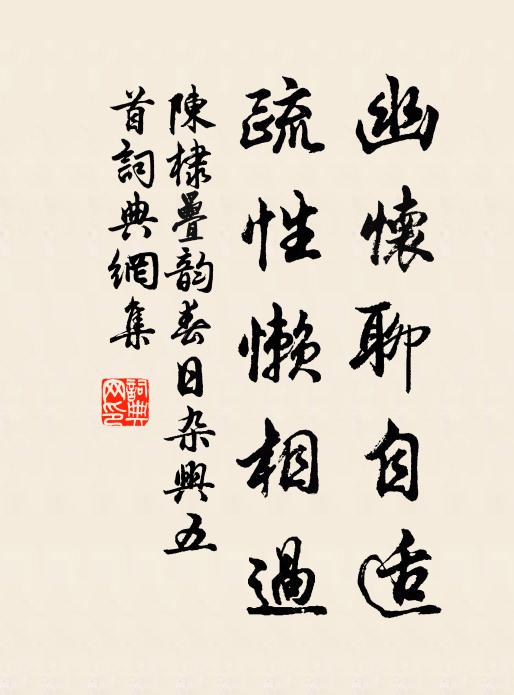 幽懷聊自适
疏性懶相過
陳棣疊韵春日杂興五
首詞典網集
詞典網印